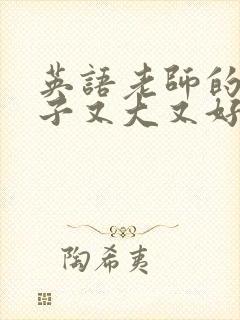 英語老師的
子又大又好
陶希夷